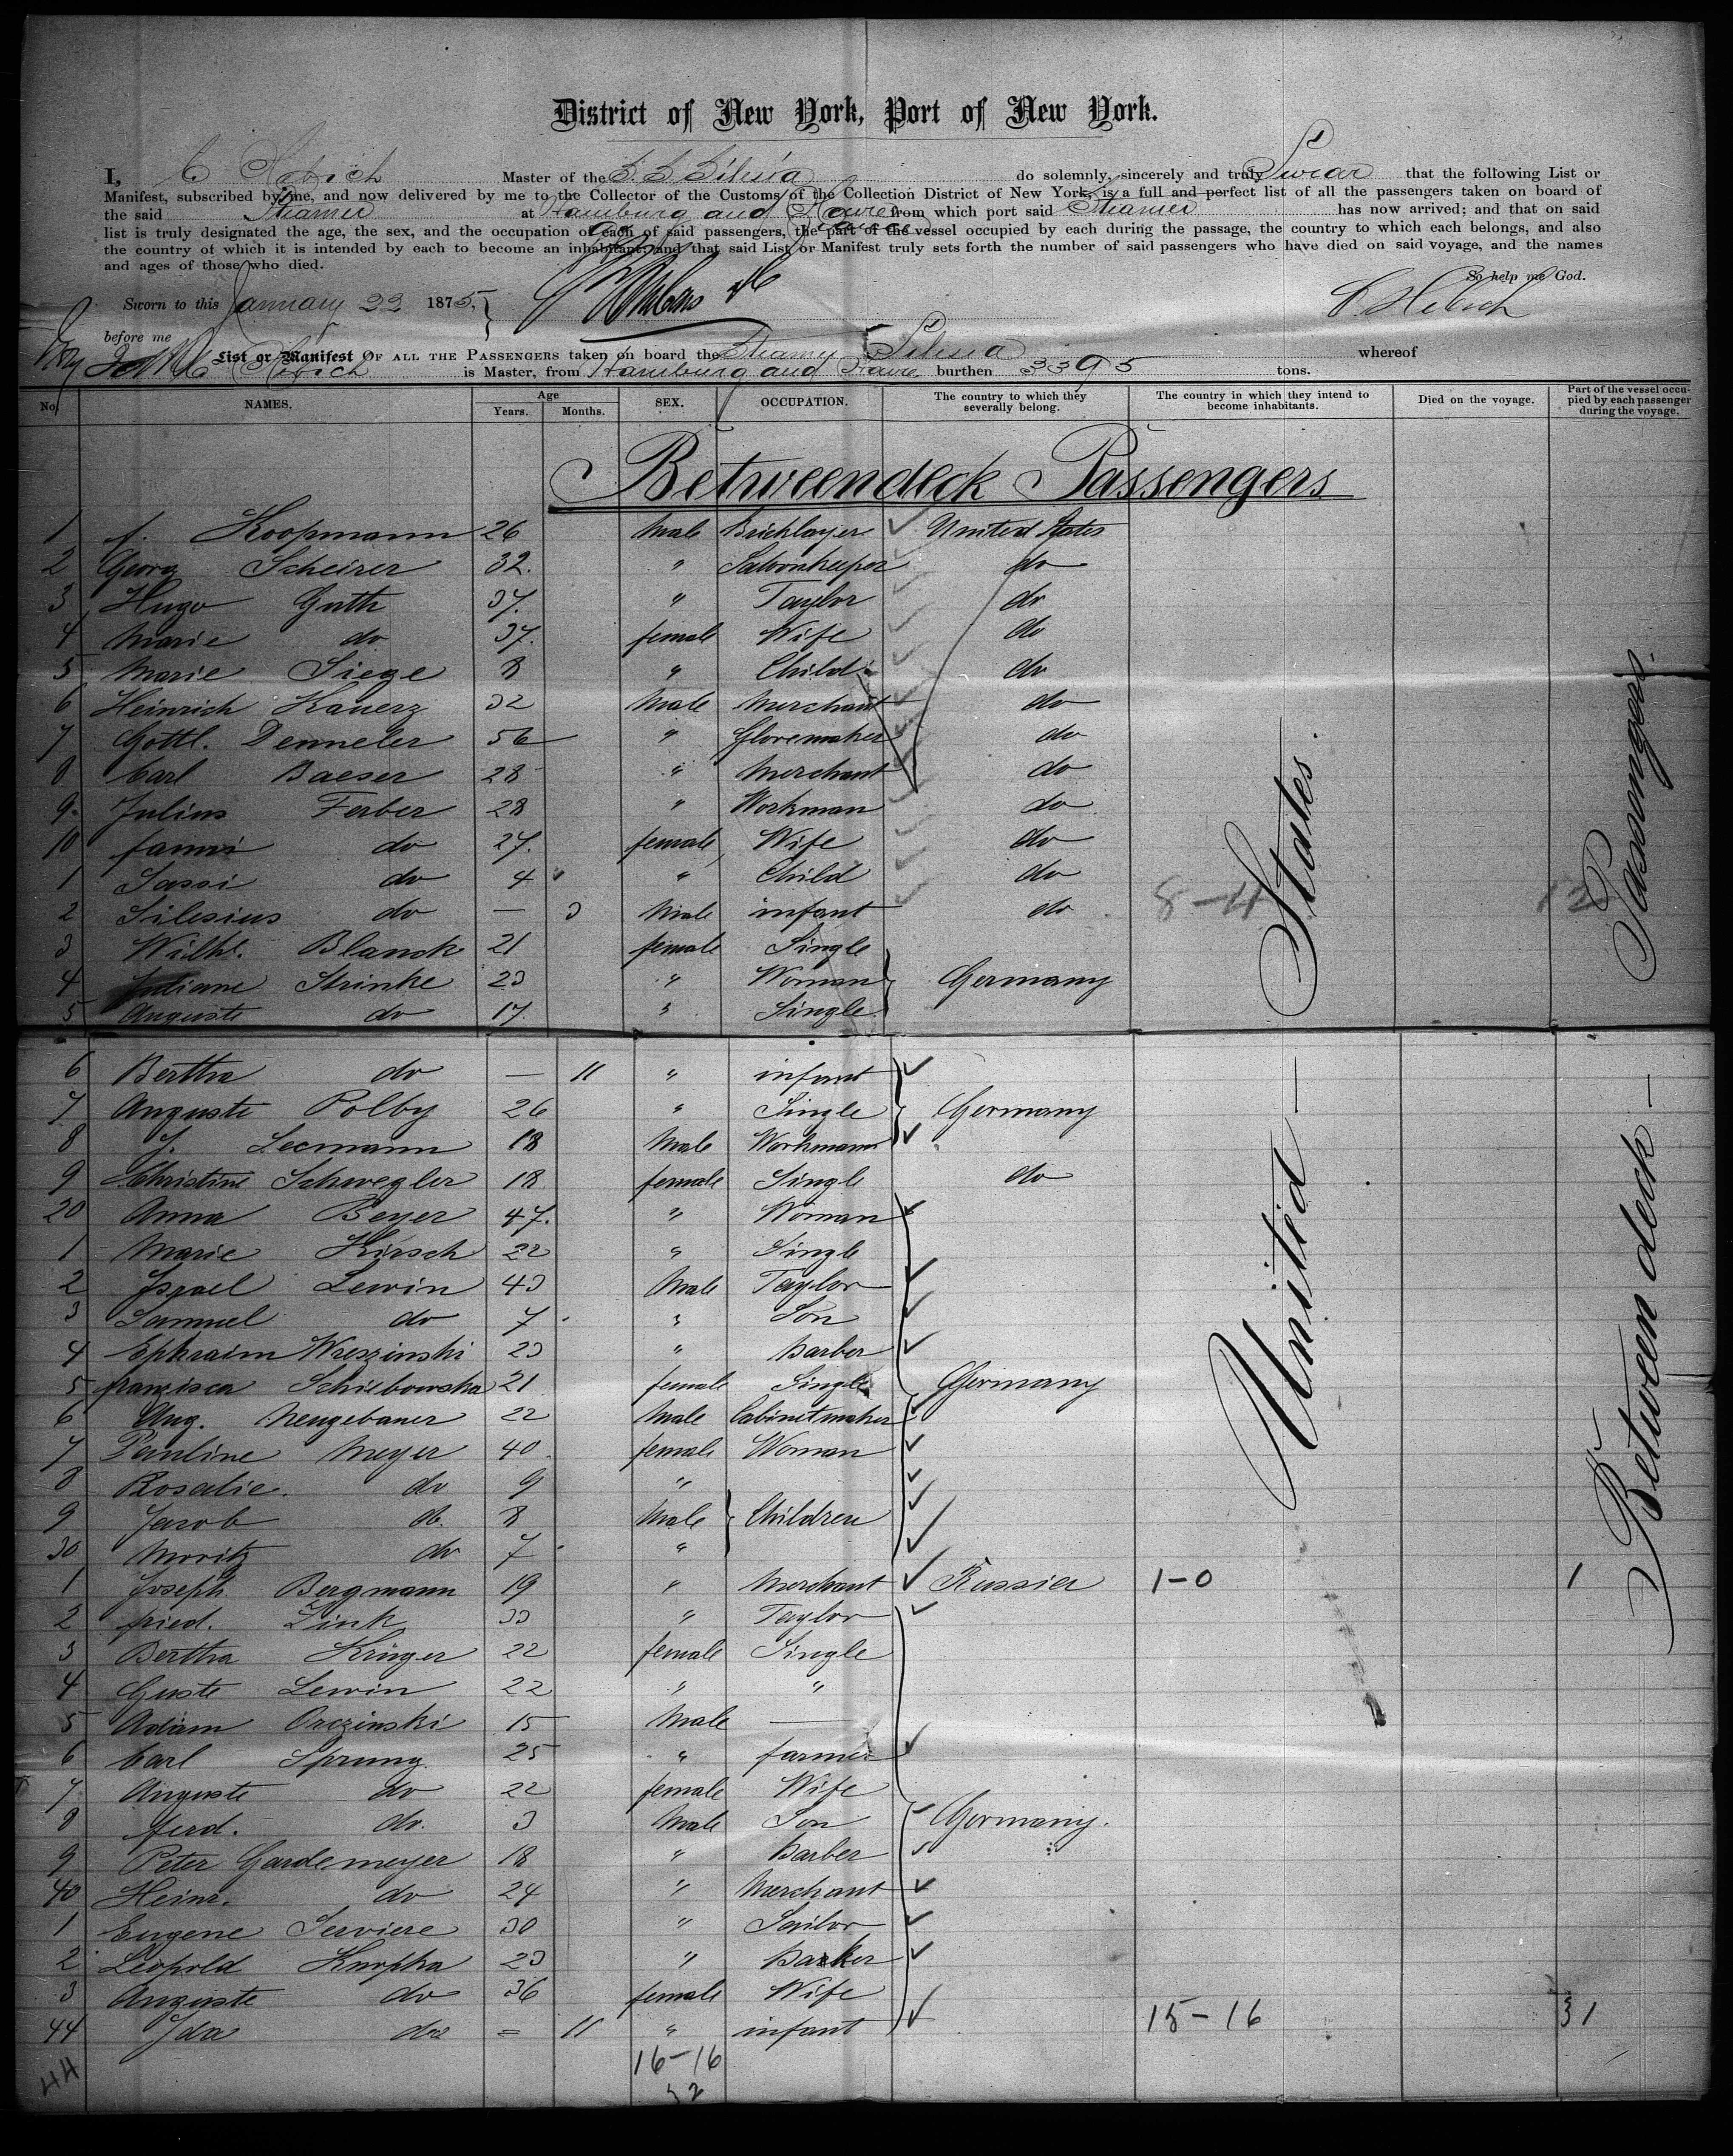 District of New York, Port of New York.
I, C Hebich Master of the S. S. Silesia do solemnly, sincerely and truly Swear that the following List or
Manifest, subscribed by me, and now delivered by me to the Collector of the Customs of the Collection District of New York, is a full and perfect list of all the passengers taken on board of
the said Steamer at Hamburg and Havre from which port said Steamer has now arrived; and that on said
list is truly designated the age, the sex, and the occupation of each of said passengers, the part of the vessel occupied by each during the passage, the country to which each belongs, and also
the country of which it is intended by each to become an inhabitant; and that said List or Manifest truly sets forth the number of said passengers who have died on said voyage, and the names
and ages of those who died.
So help me God.
Sworn to this January 22 1875
C. Hebich
before me
List or Manifest OF ALL THE PASSENGERS taken on board the Steamer Silesia whereof
C Hebich is Master, from Hamburg and Havre burthen 3395 tons.
No. NAMES. Age Years. Months. SEX. OCCUPATION. The country to which they severally belong. The country in which they intend to become inhabitants. Died on the voyage. Part of the vessel occupied by each passenger during the voyage.
Betweendeck Passengers
1 f. Koopmann 26 Male Bricklayer United States
2 Georg Scheirer 32. " Saloonkeeper do
3 Hugo Guth 37. " Taylor do
4 Marie do 37. female Wife do
5 Marie Siege 8 " Child do
6 Heinrich Kauerz 32 Male Merchant do
7 Gottl. Denneler 56 " Glovemaker do
8 Carl Baeser 28 " Merchant do
9. Julius Ferber 28 " Workman do
10 fanni do 27. female Wife do
1 Sassi do 4 " Child do
2 Silesius do — 3 Male infant do 8-4 12
3 Wilh. Blanck 21 female Single
4 Juliane Strinke 23 " Woman Germany
5 Auguste do 17. " Single
6 Bertha do — 11 " infant
7 Auguste Polby 26 " Single Germany
8 J. Lecmann 18 Male Workmann
9 Christine Schwegler 18 female Single do
20 Anna Beyer 47. " Woman
1 Marie Hirsch 22 " Single
2 Israel Lewin 43 Male Taylor
3 Samuel do 7 " Son
4 Ephraim Wreszinski 23 " Barber
5 franzisca Schiebowska 21 female Single Germany
6 Aug. Neugebauer 22 Male Cabinetmaker
7 Pauline Meyer 40 female Woman
8 Rosalie. do 9 "
9 Jacob do. 8 Male Children
30 Moritz do 7 "
1 Joseph Bergmann 19 " Merchant Russia 1-0 1
2 fried. Zink 33 " Taylor
3 Bertha Krüger 22 female Single
4 Guste Lewin 22 " "
5 Adam Orczinski 15 Male —
6 Carl Sprung 25 " farmer
7 Auguste do 22 female Wife
8 ferd. do. 3 Male Son Germany.
9 Peter Gardemeyer 18 " Barber
40 Heinr. do 24 " Merchant
1 Eugene Serviere 30 " Sailor
2 Leopold Knopha 23 " Barker
3 Auguste do 36 female Wife
44 Ida do = 11 " infant 15-16 31
44 16-16
32
United States.
Between deck Passengers.